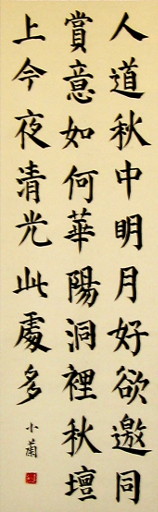 人道秋中明月好欲邀同
賞意如何華陽洞裡秋壇
上今夜清光此處多
小蘭